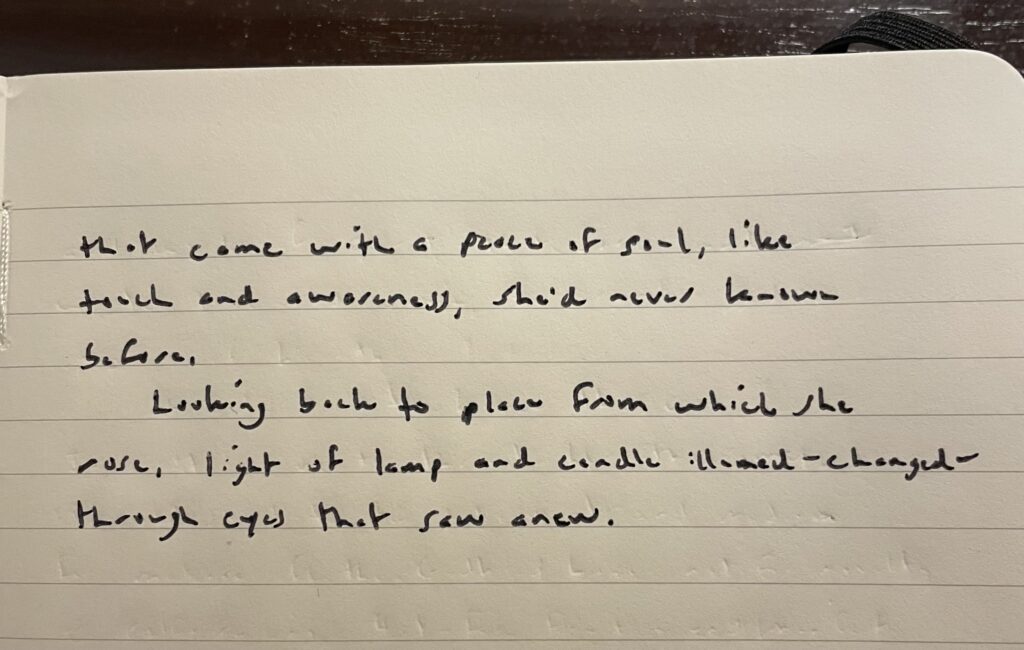 that came with a peace of soul, like
touch and awareness, she'd never known
before.
Looking back to place from which she
rose, light of lamp and candle illumed-changed-
through eyes that saw anew.